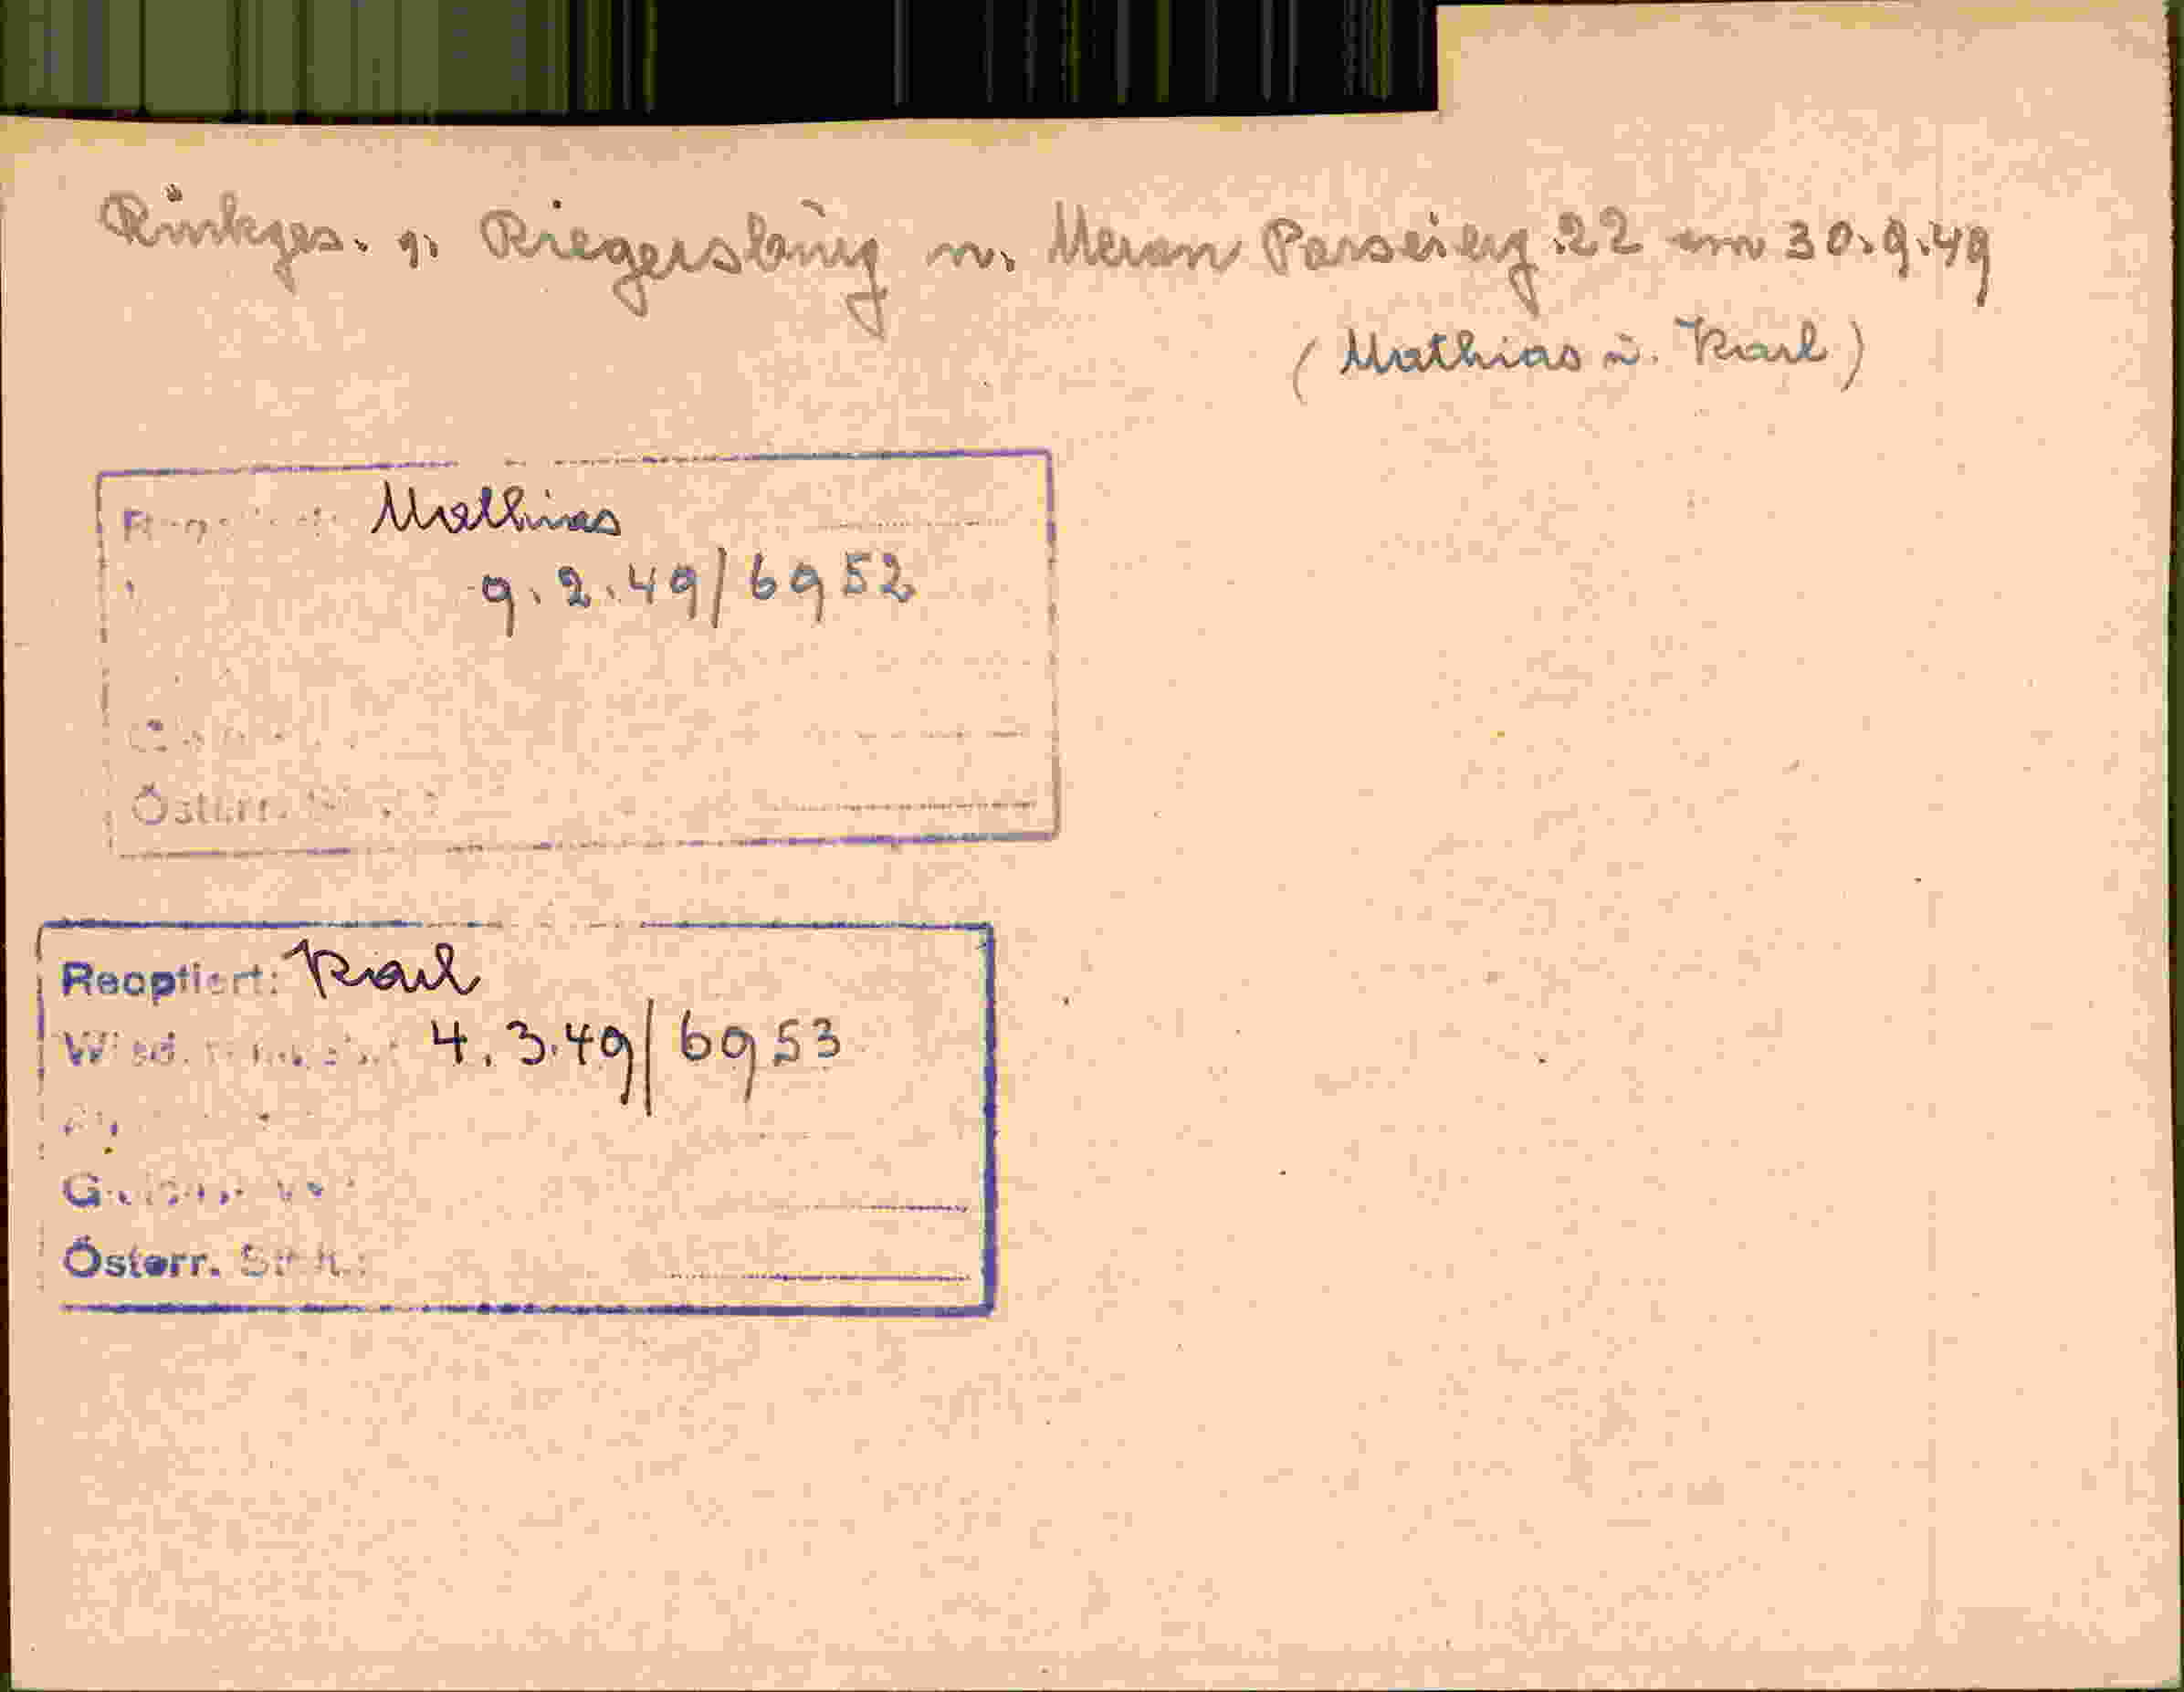 Rückges. v. Riegersburg n. Meran Passeierg. 22 am 30.9.49
(Mathias u. Karl)
Reoptiert: Mathias
9.2.49/6952
Österr.
Reoptiert: Karl
4.3.49/6953
Österr. Stb.: